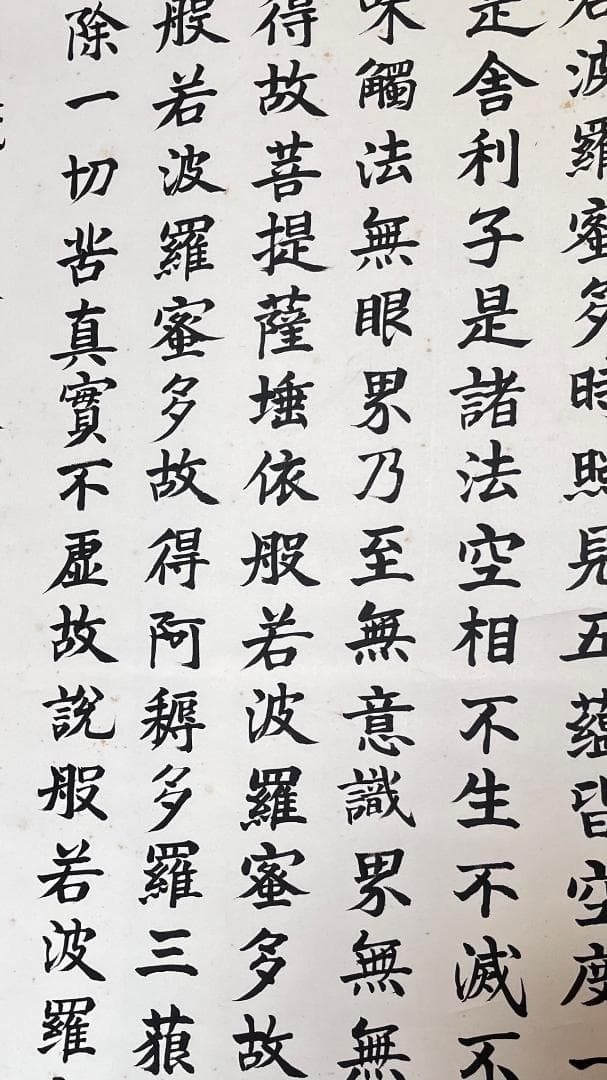 若波羅蜜多時照見五蘊皆空度一
是舍利子是諸法空相不生不滅不
味觸法無眼界乃至無意識界無無
得故菩提薩埵依般若波羅蜜多故
般若波羅蜜多故得阿耨多羅三藐
除一切苦真實不虛故說般若波羅